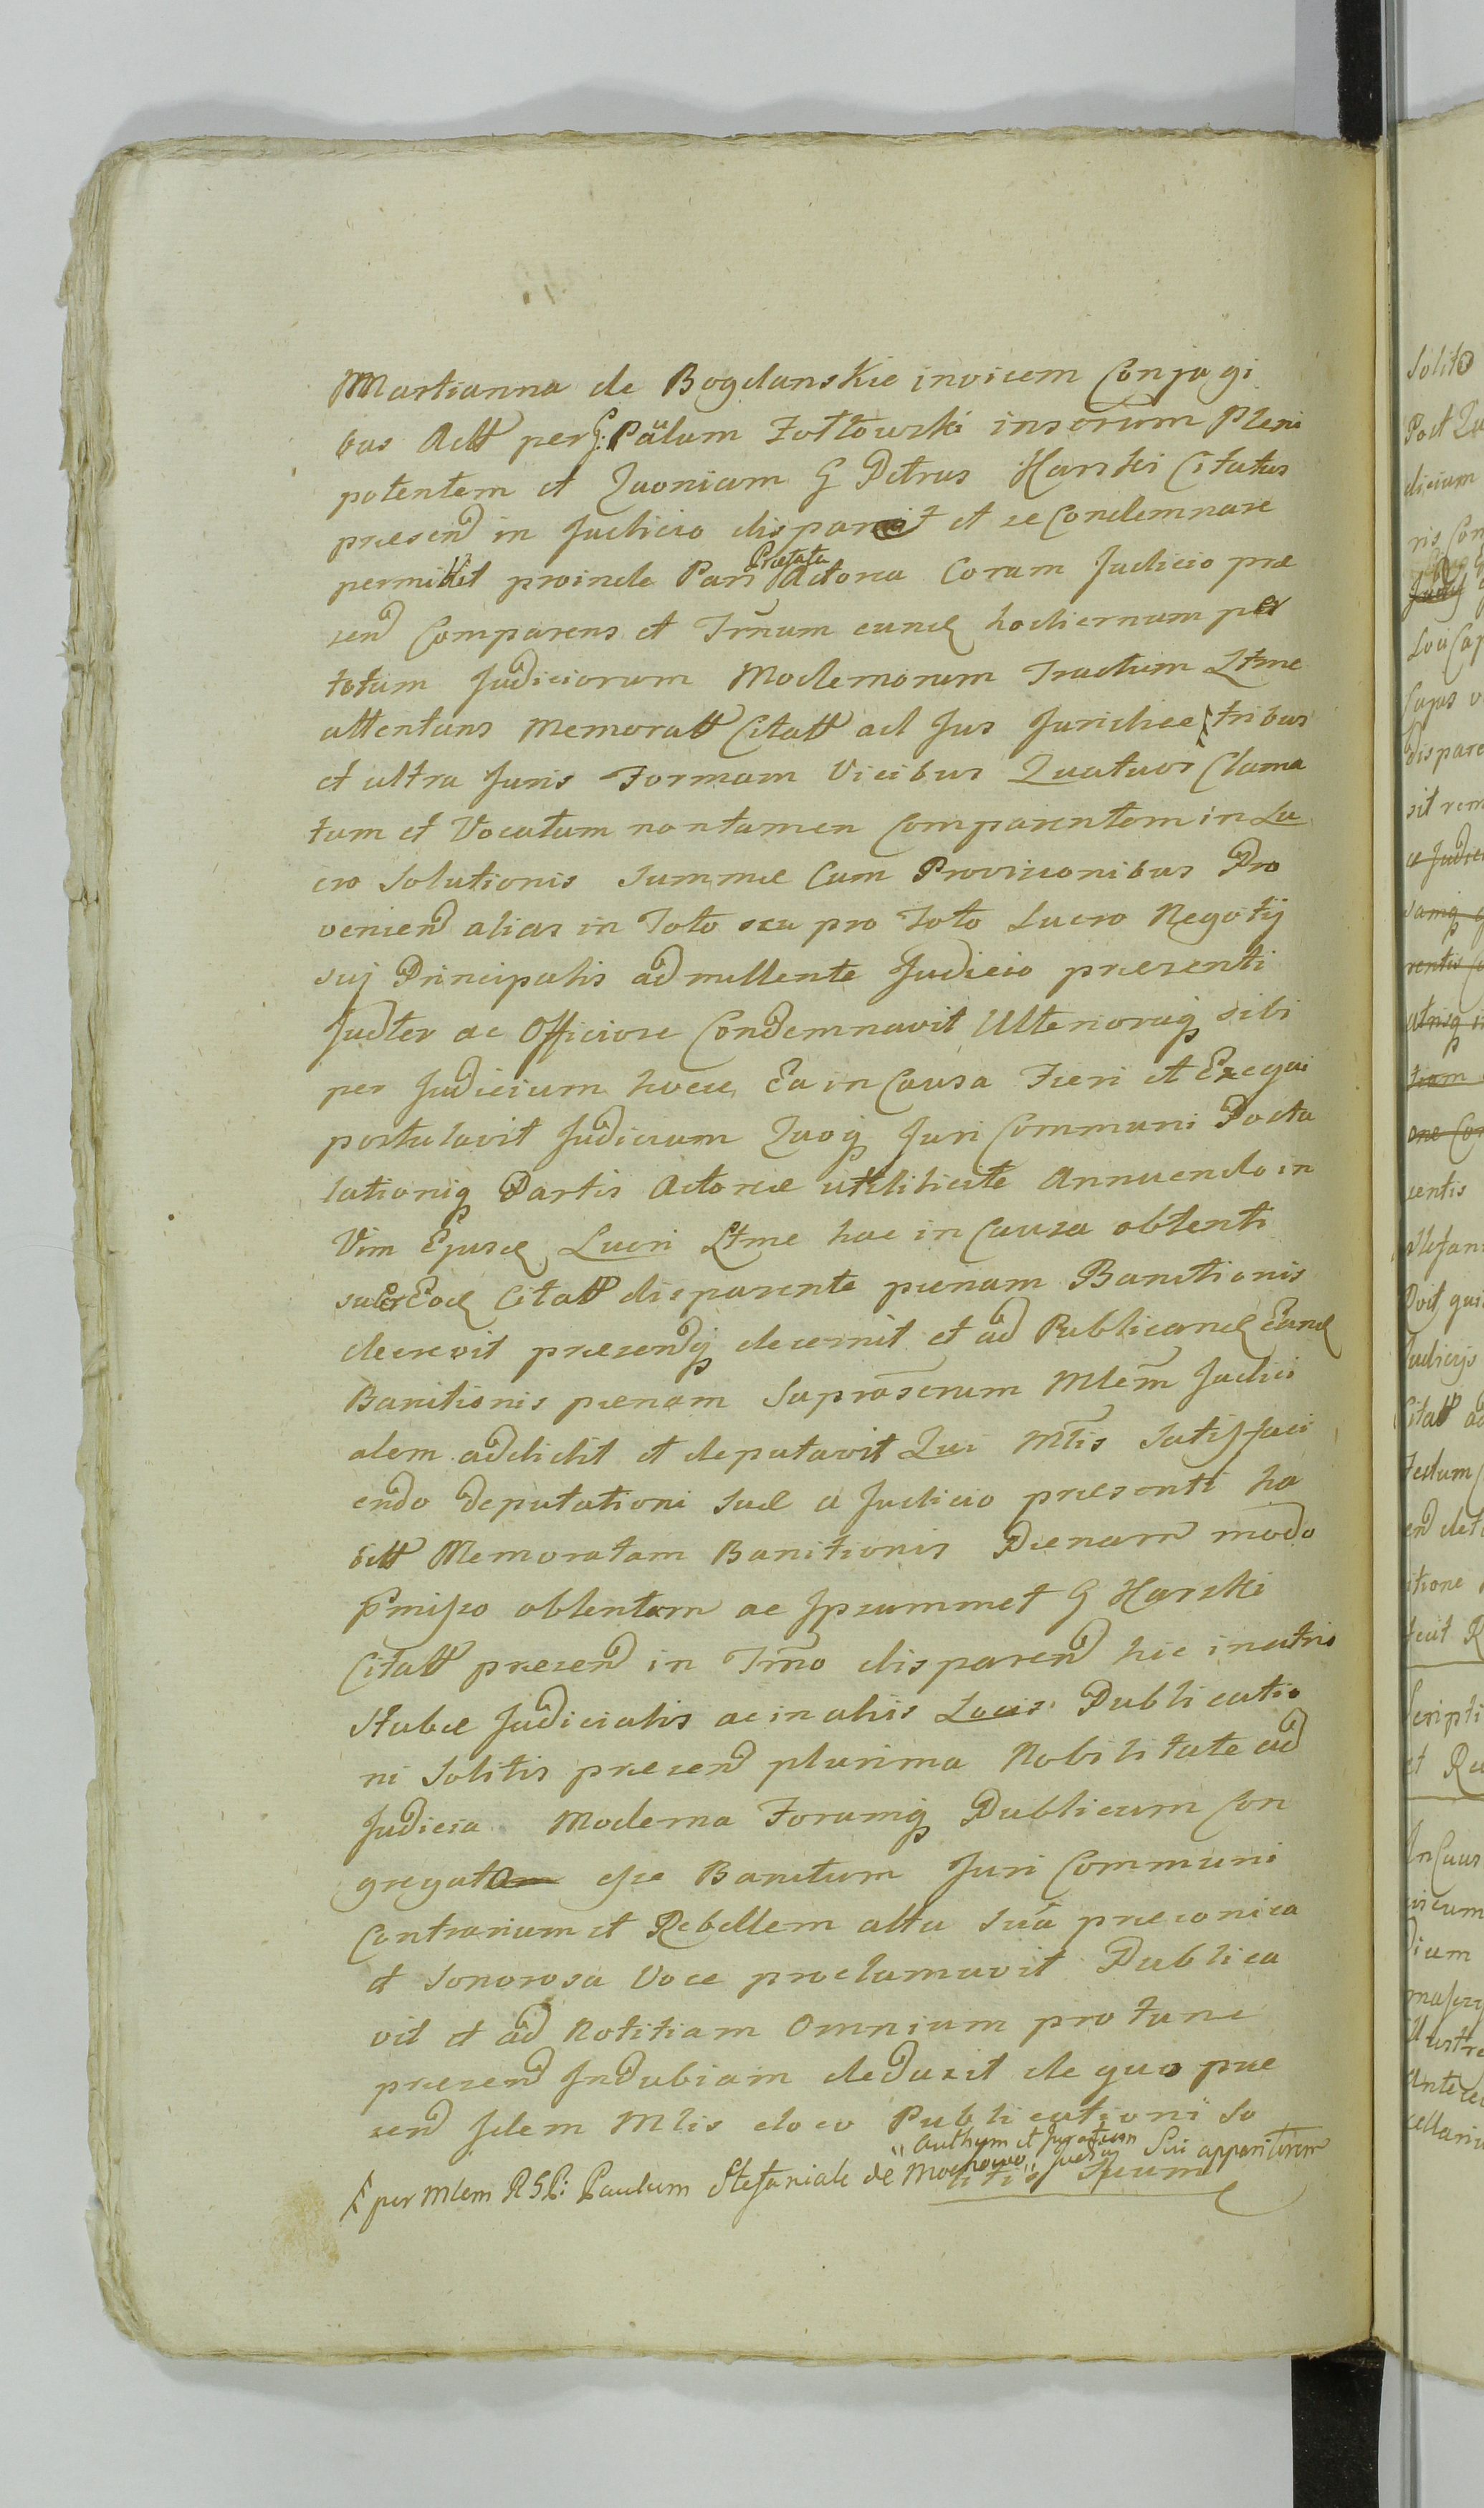 Martianna de Bogdanskie invicem Conjugi
bus Actt per G: Paulum Zołtowski inserum Pleni
potentem et Quoniam G Petrus Harski Citatus
præsend in Judicio disparuit et se Condemnare
permittit proinde Pars Prætata Actorea Coram Judicio præ
send Comparens et Trnum eund hodiernum per
totum Judiciorum Modernorum Tractum Ltme
attentans Memoratt Citatt ad Jus Juridice tribus
et ultra Juris Formam Vicibus Quatuor Clama
tum et Vocatum non tamen Comparentem in Lu
cro Solutionis Summæ Cum Provisionibus Pro
veniend alias in Toto seu pro Toto Lucro Negotij
suj Principalis admittente Judicio præsenti
Judter ac Officiose Condemnavit Ulterioraq sibi
per Judicium hocce Ea in Causa Fieri et Exequi
postulavit Judicium Quoq Juri Communi Postu
lationiq Partis Actoreæ Annuendo in
Vim Ejusd Lucri Ltme hac in Causa obtenti
super Eod Citatt disparente pænam Banitionis
decrevit præsendq decernit et ad Publicand Eand
Banitionis pænam Suprascrum Mlem Judici
alem addidit et deputavit Qui Mtis Satisfaci
endo deputationi suæ a Judicio præsenti ha
bitt Memoratam Banitionis Pænam modo
pmisso obtentam ac Ipsummet G Harski
Citatt præsend in Trno disparend hic in atrio
Stubæ Judicialis ac in aliis Locis Publicatio
ni Solitis præsend plurima Nobilitate ad
Judicia Moderna Forumq Publicum Con
gregata esse Banitum Juri Communi
Contrarium et Rebellem alta Sua præconica
et Sonorosa Voce proclamavit Publica
vit et ad Notitiam Omnium pro tunc
præsend Indubiam deduxit de quo præ
send Idem Mlis eloco Publicationi So
"Authum et Juratum Sui apparitorem
litis suum
per Mlem R S P: Paulum Stefaniak de